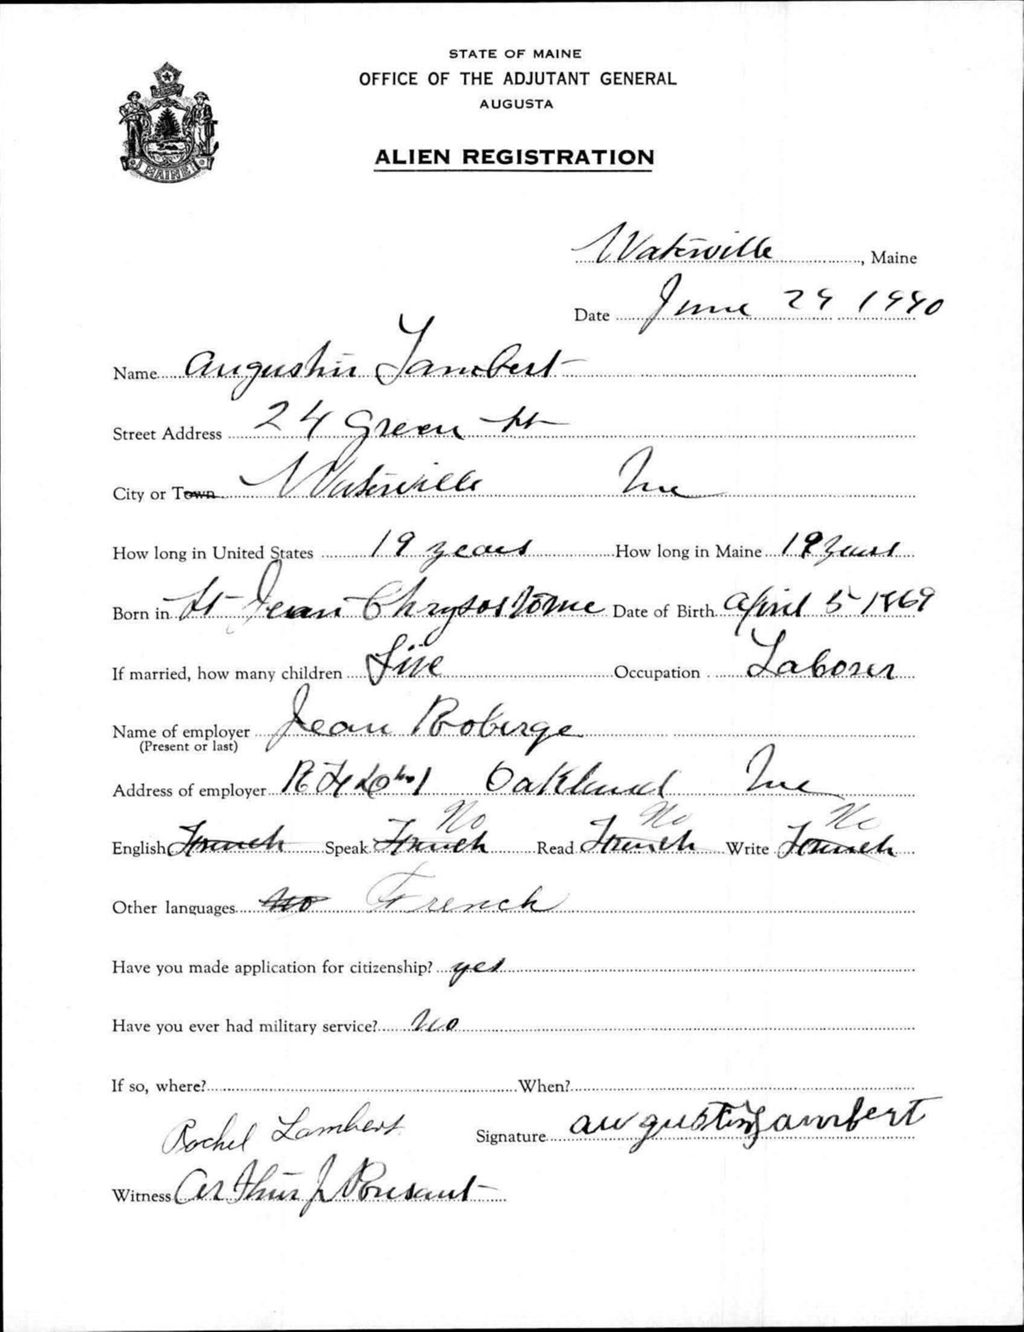 STATE OF MAINE
OFFICE OF THE ADJUTANT GENERAL
AUGUSTA
ALIEN REGISTRATION
MAINE
Waterville, Maine
Date June 29 1940
Name Augustin Lambert
Street Address 24 Green St
City or Town Waterville Me
How long in United States 19 years How long in Maine 19 years
Born in St Jean Chrysostome Date of Birth April 5 1869
If married, how many children Five Occupation Laborer
Name of employer Jean Roberge
(Present or last)
Address of employer RFD No 1 Oakland Me
No No No
English French Speak French Read French Write French
Other languages no French
Have you made application for citizenship? yes
Have you ever had military service? No
If so, where? When?
Rachel Lambert Signature Augustin Lambert
Witness Arthur J